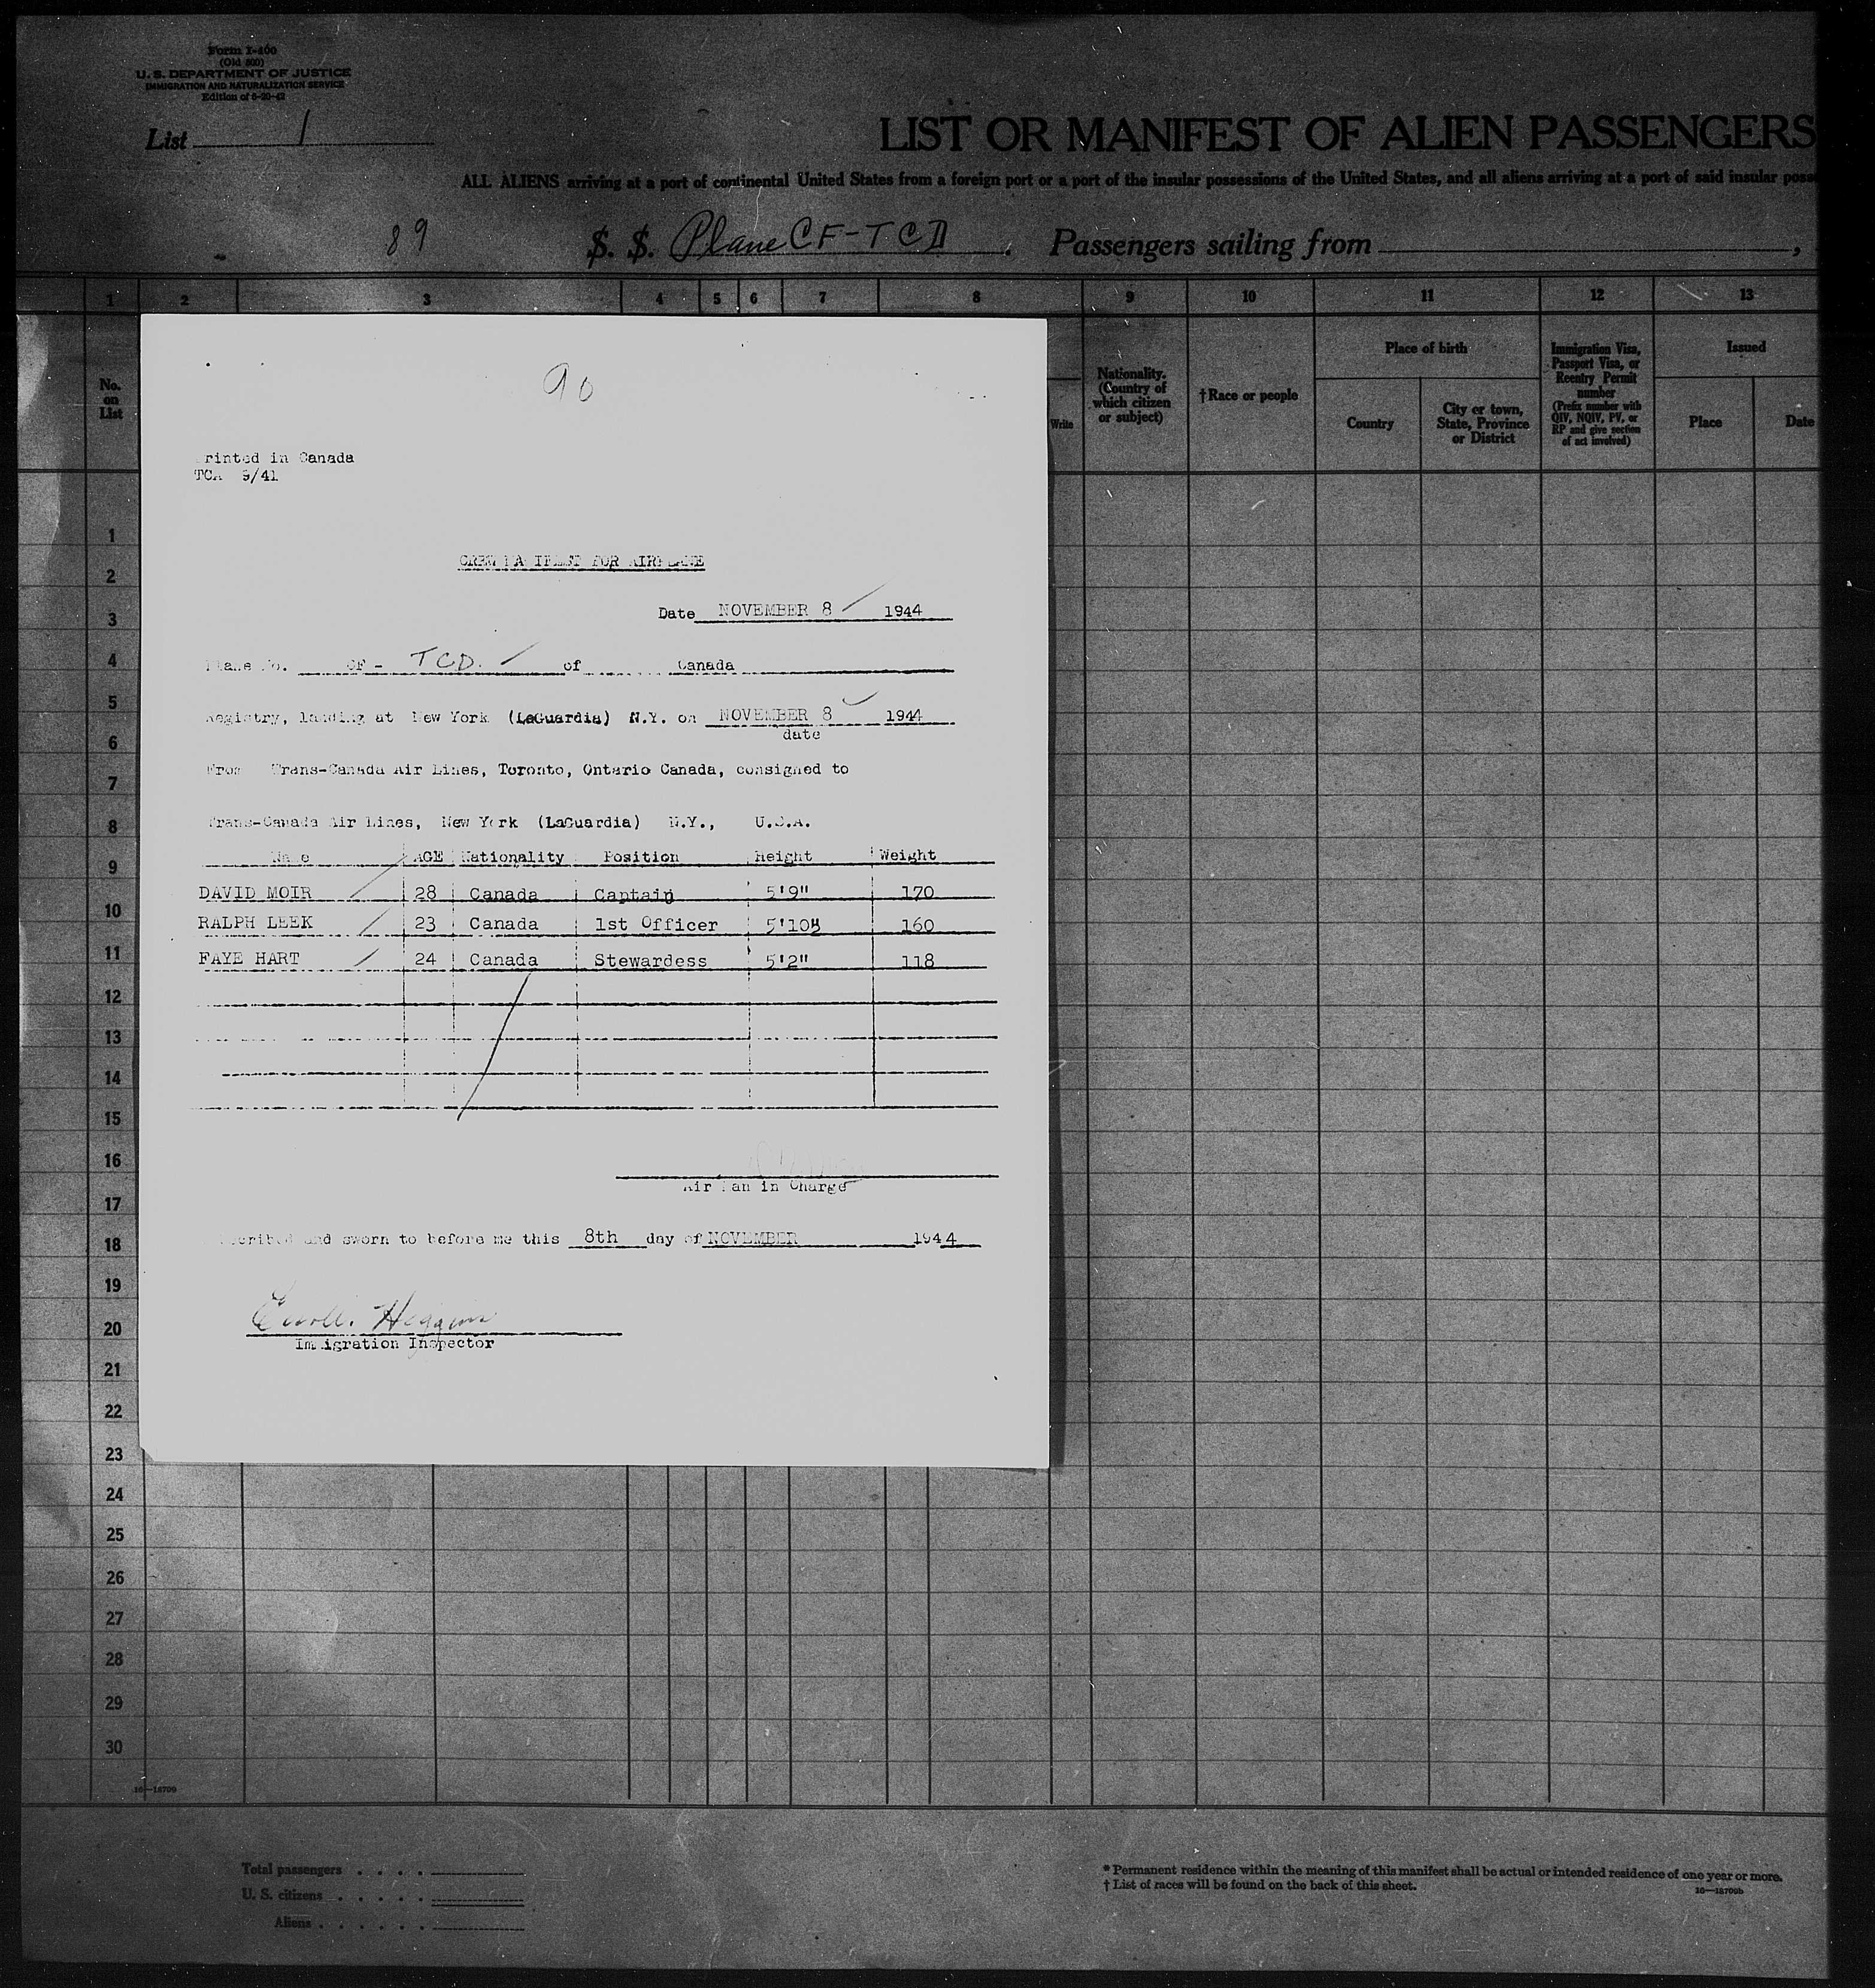 Form I-400
(Old 500)
U. S. DEPARTMENT OF JUSTICE
IMMIGRATION AND NATURALIZATION SERVICE
Edition of 5-20-42
List 1
LIST OR MANIFEST OF ALIEN PASSENGERS
ALL ALIENS arriving at a port of continental United States from a foreign port or a port of the insular possessions of the United States, and all aliens arriving at a port of said insular poss
89 S. S. Plane CF-TCD . Passengers sailing from ,
1 2 3 4 5 6 7 8 9 10 11 12 13
No. on List
Write
Nationality. (Country of which citizen or subject)
†Race or people
Place of birth
Country
City or town, State, Province or District
Immigration Visa, Passport Visa, or Reentry Permit number
(Prefix number with QIV, NQIV, PV, or RP and give section of act involved)
Issued
Place
Date
90
rinted in Canada
TCA 9/41
CREW MANIFEST FOR AIRPLANE
Date NOVEMBER 8 1944
Plane No. CF - TCD. of Canada
Registry, landing at New York (LaGuardia) N.Y. on NOVEMBER 8 1944
date
From Trans-Canada Air Lines, Toronto, Ontario Canada, consigned to
Trans-Canada Air Lines, New York (LaGuardia) N.Y., U.S.A.
Name AGE Nationality Position Height Weight
DAVID MOIR 28 Canada Captain 5'9" 170
RALPH LEEK 23 Canada 1st Officer 5'10" 160
FAYE HART 24 Canada Stewardess 5'2" 118
Air Man in Charge
scribed and sworn to before me this 8th day of NOVEMBER 1944
Immigration Inspector
1
2
3
4
5
6
7
8
9
10
11
12
13
14
15
16
17
18
19
20
21
22
23
24
25
26
27
28
29
30
16—18709
Total passengers . . . .
U. S. citizens . . . . .
Aliens . . . . . .
* Permanent residence within the meaning of this manifest shall be actual or intended residence of one year or more.
† List of races will be found on the back of this sheet.
16—18709b